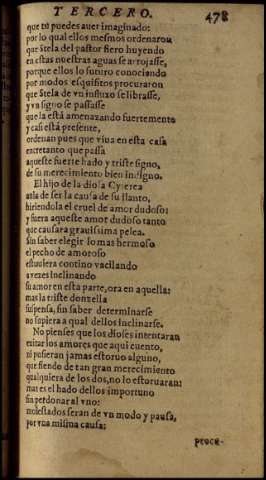 TERCERO. 478
que tu puedes auer imaginado:
por lo qual ellos mesmos ordenaron
que Stela del pastor fiero huyendo
en estas nuestras aguas se arrojasse,
porque ellos lo futuro conociendo
por modos esquisitos procuraron
que Stela de vn influxo se librasse,
y vn signo se passasse
que la està amenazando fuertemente
y casi està presente,
ordenan pues que viua en esta casa
entretanto que passa
aqueste fuerte hado y triste signo,
de su merecimiento bien indigno.
El hijo de la diosa Cyterea
auia de ser la causa de su llanto,
hiriendola el cruel de amor dudoso:
y fuera aqueste amor dudoso tanto
que causara grauissima pelea.
Sin saber elegir lo mas hermoso
el pecho de amoroso
estuuiera contino vacilando
a vezes inclinando
su amor en esta parte, ora en aquella:
mas la triste donzella
suspensa, sin saber determinarse
no supiera a qual dellos inclinarse.
No pienses que los dioses intentaran
euitar los amores que aqui cuento,
ni pusieran jamas estoruo alguno,
que siendo de tan gran merecimiento
qualquiera de los dos, no lo estoruaran:
mas es el hado dellos importuno
sin perdonar al vno:
molestados seran de vn modo y pausa,
por vna misma causa:
proce-